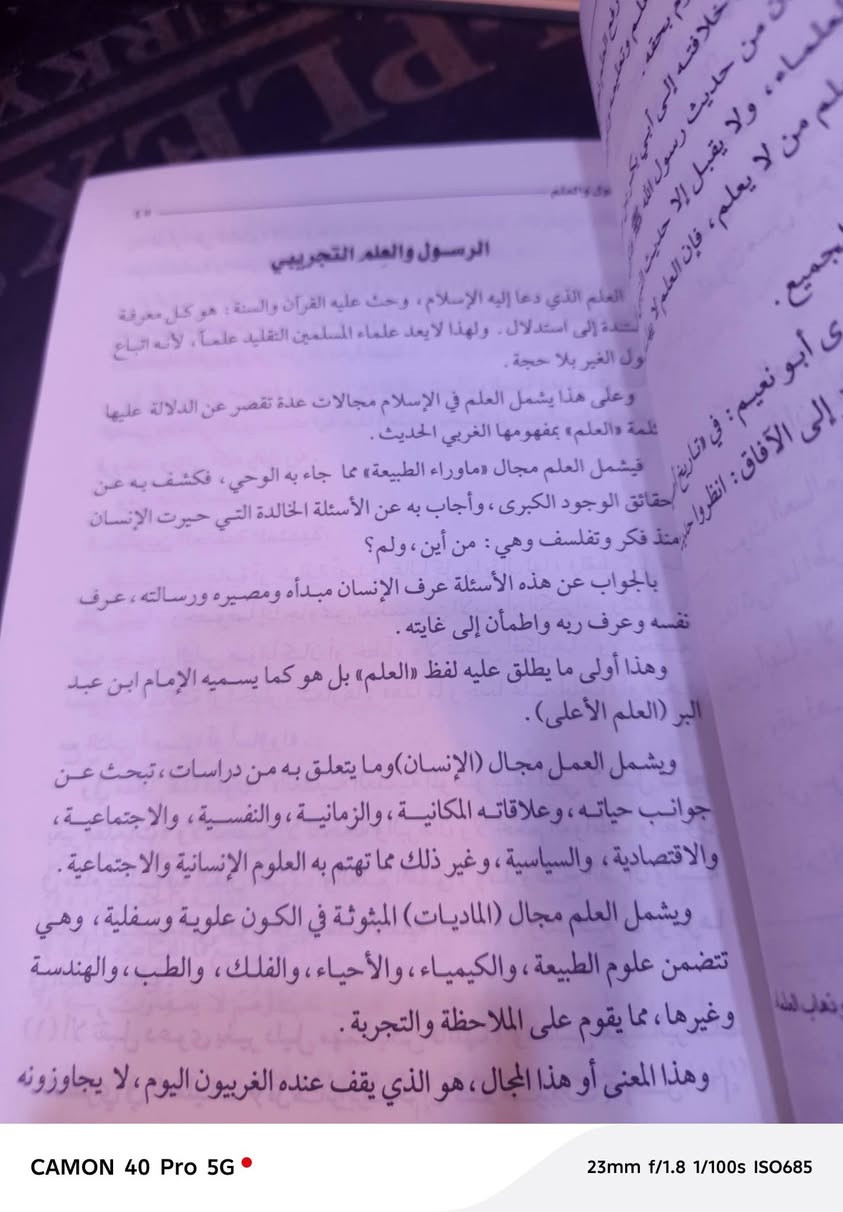 PLEX
٤٥
الرسول والعلم
الرسول والعلم التجريبي
العلم الذي دعا إليه الإسلام، وحث عليه القرآن والسنة: هو كل معرفة
إلى استدلال. ولهذا لا يعد علماء المسلمين التقليد علماً، لأنه اتباع
الغير بلا حجة.
وعلى هذا يشمل العلم في الإسلام مجالات عدة تقصر عن الدلالة عليها
«العلم» بمفهومها الغربي الحديث.
فيشمل العلم مجال «ماوراء الطبيعة» مما جاء به الوحي، فكشف به عن
حقائق الوجود الكبرى، وأجاب به عن الأسئلة الخالدة التي حيرت الإنسان
منذ فكر وتفلسف وهي: من أين، ولم؟
بالجواب عن هذه الأسئلة عرف الإنسان مبدأه ومصيره ورسالته، عرف
نفسه وعرف ربه واطمأن إلى غايته.
وهذا أولى ما يطلق عليه لفظ «العلم» بل هو كما يسميه الإمام ابن عبد
البر (العلم الأعلى).
ويشمل العمل مجال (الإنسان)وما يتعلق به من دراسات، تبحث عن
جوانب حياته، وعلاقاته المكانية، والزمانية، والنفسية، والاجتماعية،
والاقتصادية، والسياسية، وغير ذلك مما تهتم به العلوم الإنسانية والاجتماعية.
ويشمل العلم مجال (الماديات) المبثوثة في الكون علوية وسفلية، وهي
تتضمن علوم الطبيعة، والكيمياء، والأحياء، والفلك، والطب، والهندسة
وغيرها، مما يقوم على الملاحظة والتجربة.
وهذا المعنى أو هذا المجال، هو الذي يقف عنده الغربيون اليوم، لا يجاوزونه
خلافته إلى أبي بكر
من حديث رسول الله ﷺ
العلماء، ولا يقبل إلا حديث
من لا يعلم، فإن العلم لا
أبو نعيم: في «تاريخ
إلى الآفاق: انظروا
CAMON 40 Pro 5G
23mm f/1.8 1/100s ISO685